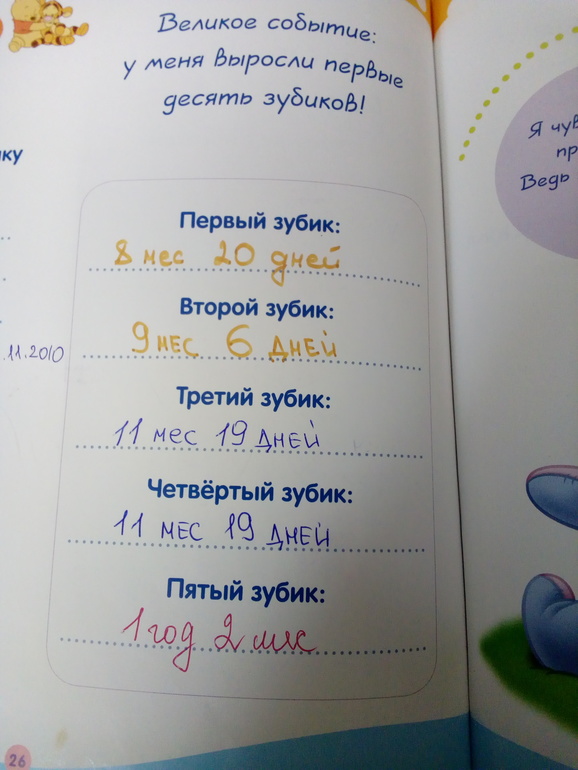 Великое событие:
у меня выросли первые
десять зубиков!
ку
Первый зубик:
8 мес 20 дней
Второй зубик:
9 мес 6 дней
.11.2010
Третий зубик:
11 мес 19 дней
Четвёртый зубик:
11 мес 19 дней
Пятый зубик:
1 год 2 мес
26
Я чув
пр
Ведь